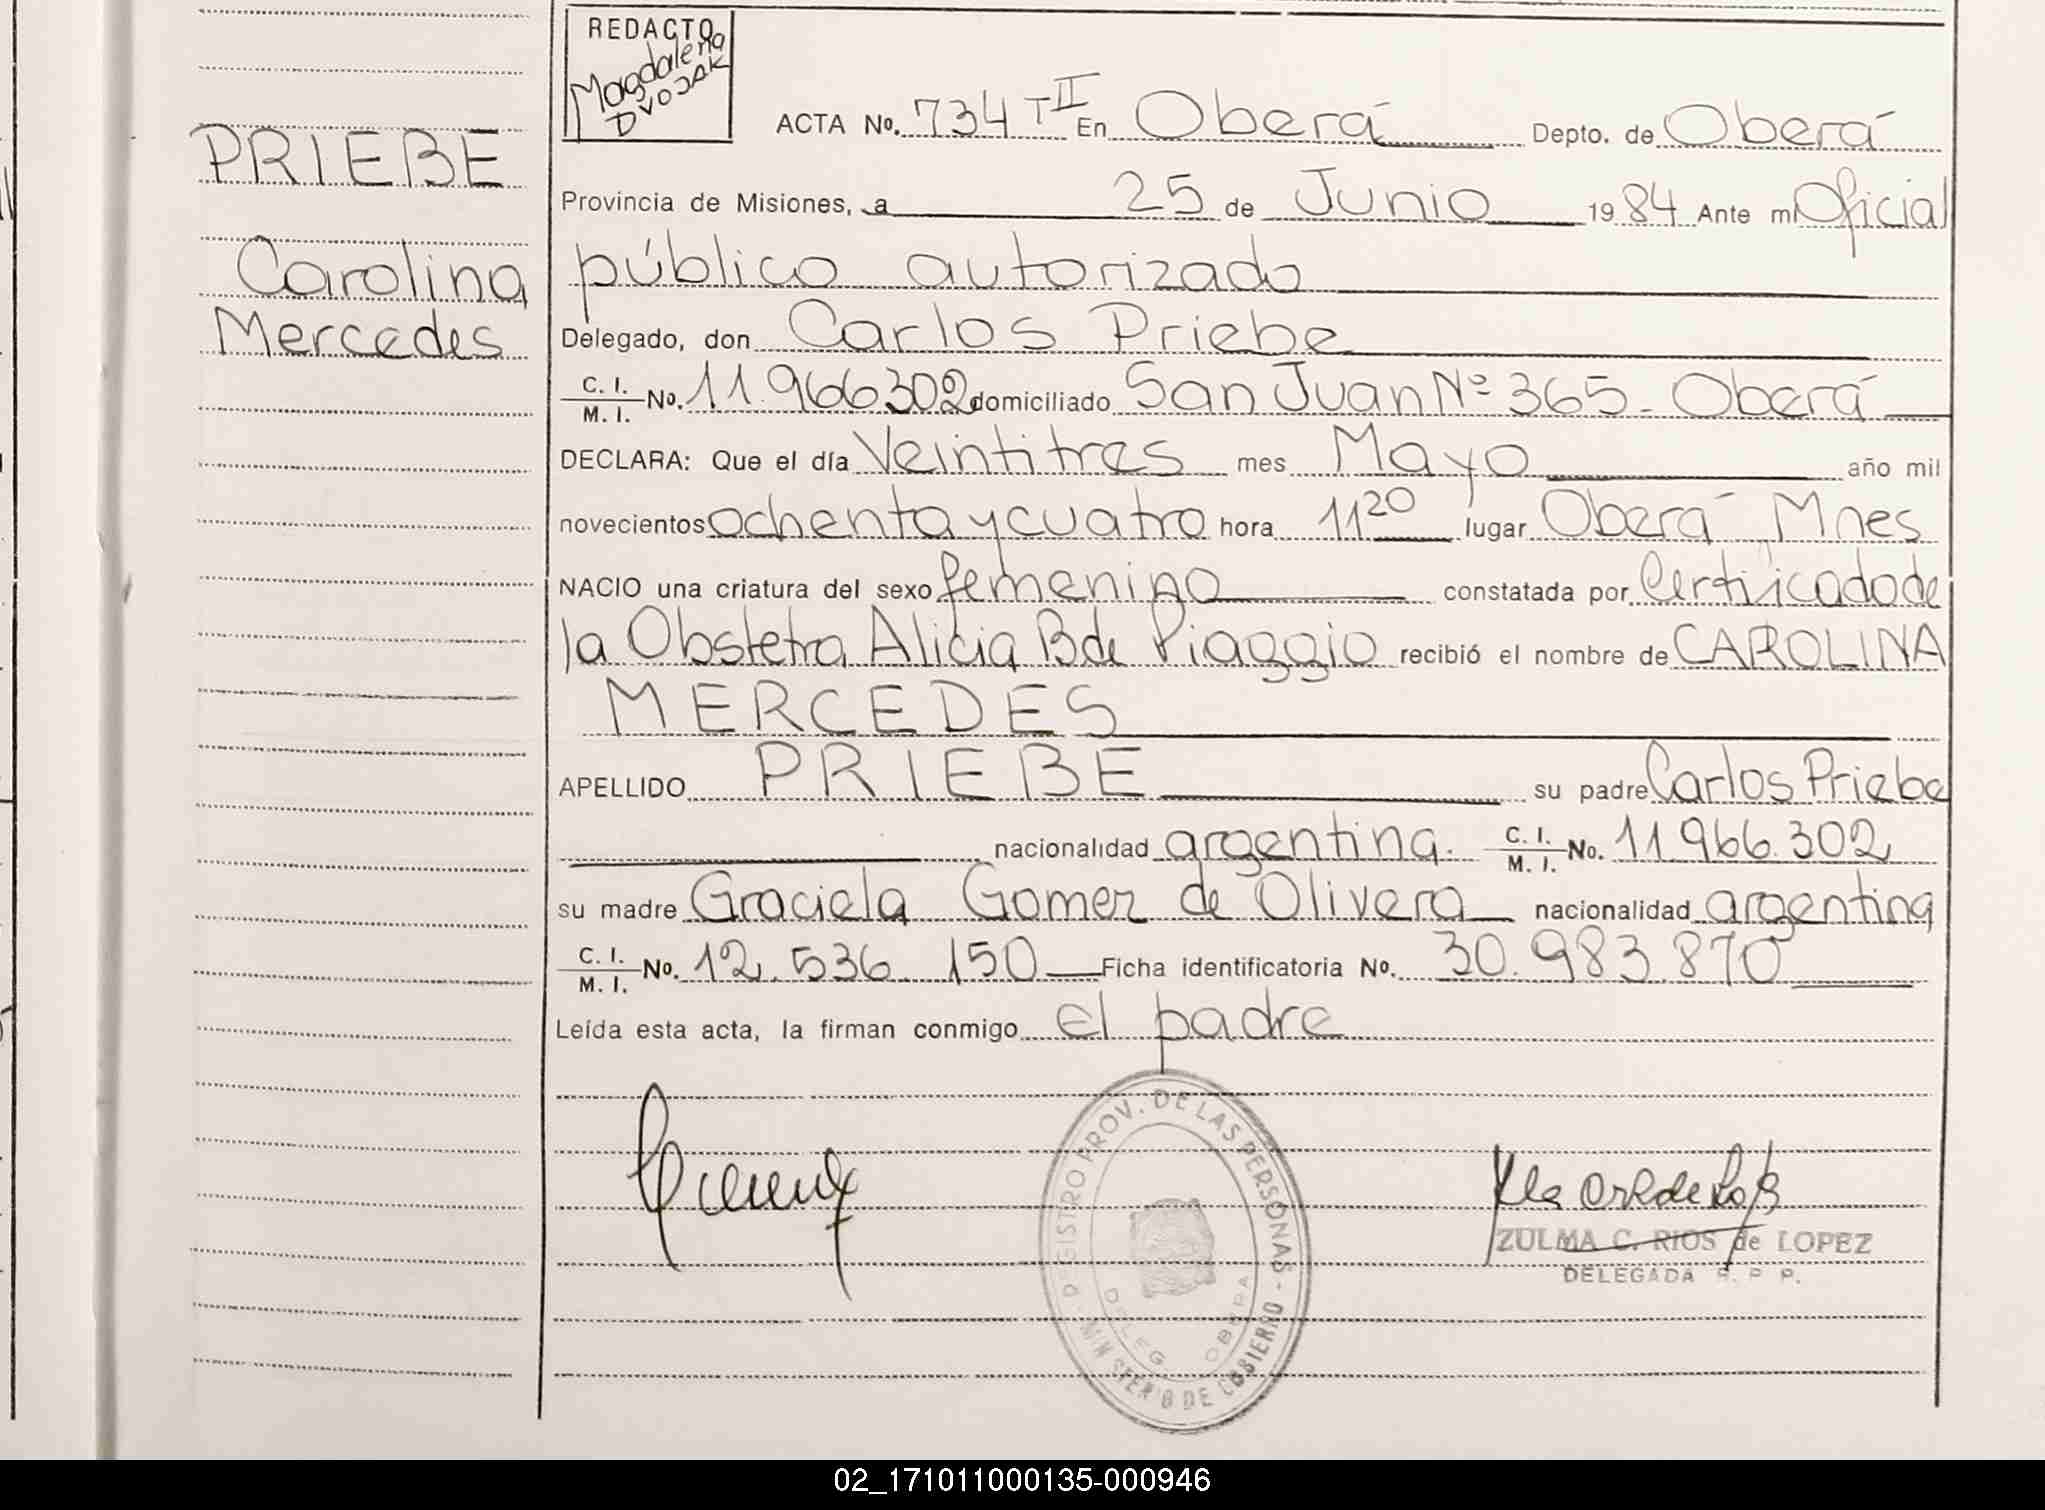 REDACTO
Magdalena
DVOJAK
PRIEBE
Carolina
Mercedes
ACTA No. 734 T II En Oberá Depto. de Oberá
Provincia de Misiones, a 25 de Junio 1984 Ante mi Oficial
público autorizado
Delegado, don Carlos Priebe
C. I. / M. I. No. 11.966.302 domiciliado San Juan Nº 365 - Oberá
DECLARA: Que el día Veintitres mes Mayo año mil
novecientos ochenta y cuatro hora 11 20 lugar Oberá Mnes
NACIO una criatura del sexo femenino constatada por Certificado de
la Obstetra Alicia B de Piaggio recibió el nombre de CAROLINA
MERCEDES
APELLIDO PRIEBE su padre Carlos Priebe
nacionalidad argentina. C. I. / M. I. No. 11.966.302
su madre Graciela Gomez de Olivera nacionalidad argentina
C. I. / M. I. No. 12.536.150 Ficha identificatoria No. 30.983.870
Leída esta acta, la firman conmigo el padre
REGISTRO PROV. DE LAS PERSONAS - MINISTERIO DE GOBIERNO
DELEG. OBERA
ZULMA C. RIOS de LOPEZ
DELEGADA R. P. P.
02_171011000135-000946